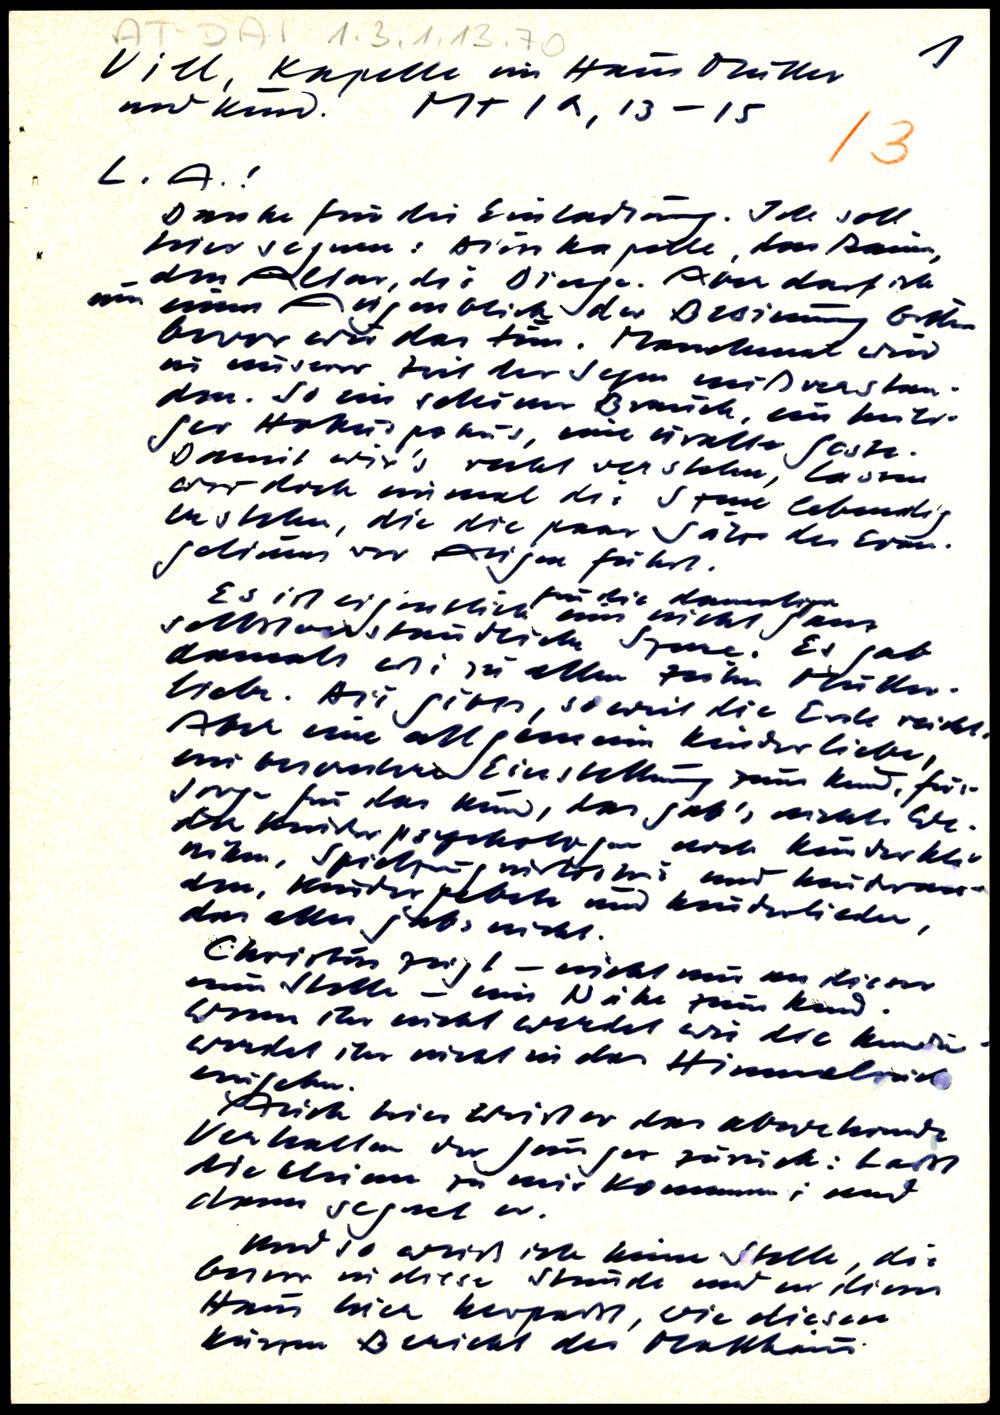 AT-DAI 1.3.1.13.70
1
Vill, Kapelle im Haus Mutter
und Kind. Mt 19, 13-15
13
L. A.!
Danke für die Einladung. Ich soll
hier segnen: Diese Kapelle, den Raum,
den Altar, die Dinge. Aber darf ich
um einen Augenblick der Besinnung bitten
bevor wir das tun. Manchmal wird
in unserer Zeit der Segen mißverstan-
den. So ein schöner Brauch, ein heili-
ger Hokuspokus, eine uralte Geste.
Damit wir's recht verstehen, lassen
wir doch einmal die Szene lebendig
erstehen, die die paar Sätze des Evan-
geliums vor Augen führt.
Es ist eigentlich für die damalige
eine nicht ganz
selbstverständliche Szene. Es gab
damals wie zu allen Zeiten Mutter-
liebe. Die gibt's, soweit die Erde reicht.
Aber eine allgemeine Kinderliebe,
eine besondere Einstellung zum Kind, Für-
sorge für das Kind, das gab's nicht. We-
der Kinderpsychologen noch Kinderkli-
niken, Spielzeugindustrie und
Kindergebete und Kinderlieder,
das alles gab's nicht.
Christus zeigt - nicht nur an dieser
einen Stelle - eine Nähe zum Kind.
Wenn ihr nicht werdet wie die Kinder
werdet ihr nicht in das Himmelreich
eingehen.
Auch hier weist er das abwehrende
Verhalten der Jünger zurück: Laßt
die Kleinen zu mir kommen; und
dann segnet er.
Und so weiß ich keine Stelle, die
besser in diese Stunde und in dieses
Haus hier herpaßt, wie diesen
kurzen Bericht des Matthäus.